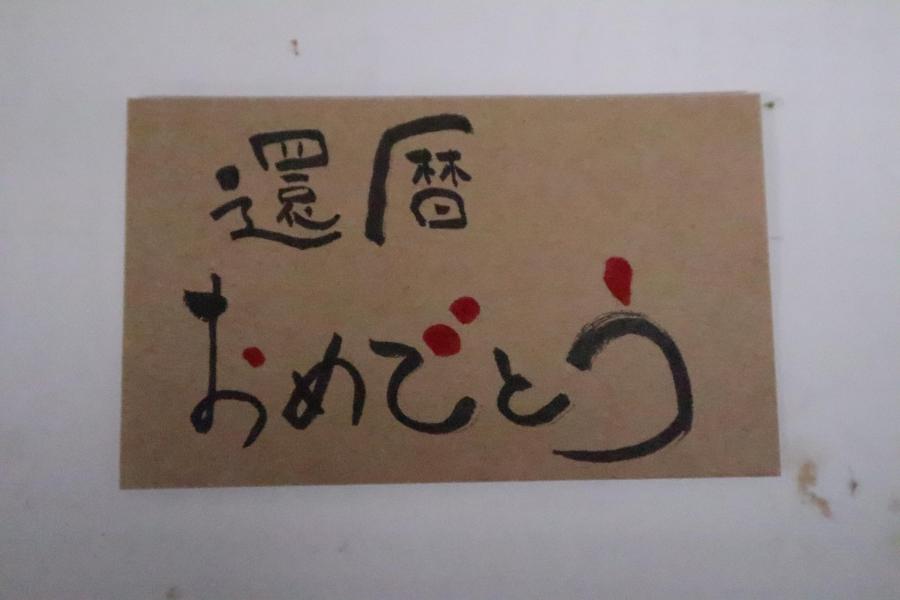 還暦
おめでとう